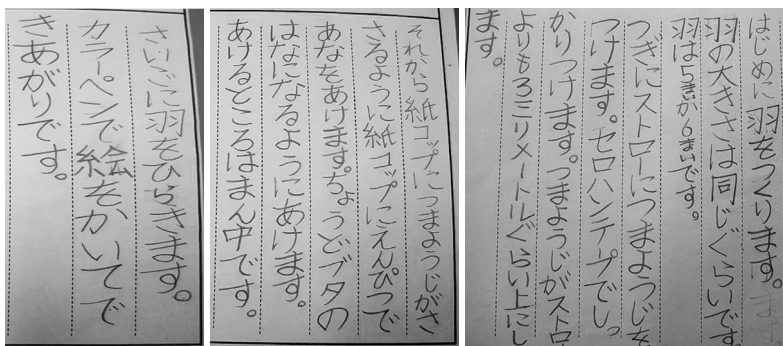 はじめに羽をつくります。
羽の大きさは同じぐらいです
羽は5まいか6まいです。
つぎにストローにつまようじを
つけます。セロハンテープでしっ
かりつけます。つまようじがストロ
よりも3ミリメートルぐらい上にし
ます。
それから紙コップにつまようじがさ
さるように紙コップにえんぴつで
あなをあけます。ちょうどブタの
はなになるようにあけます。
あけるところはまん中です。
さいごに羽をひらきます。
カラーペンで絵をかいてで
きあがりです。